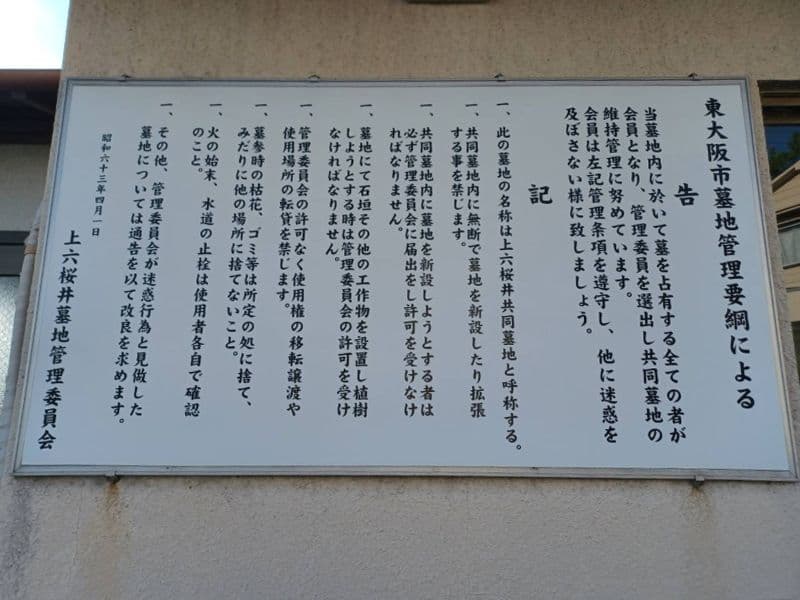 東大阪市墓地管理要綱による
告
当墓地内に於いて墓を占有する全ての者が
会員となり、管理委員を選出し共同墓地の
維持管理に努めています。
会員は左記管理条項を遵守し、他に迷惑を
及ぼさない様に致しましょう。
記
一、此の墓地の名称は上六桜井共同墓地と呼称する。
一、共同墓地内に無断で墓地を新設したり拡張
する事を禁じます。
一、共同墓地内に墓地を新設しようとする者は
必ず管理委員会に届出をし許可を受けなけ
ればなりません。
一、墓地にて石垣その他の工作物を設置し植樹
しようとする時は管理委員会の許可を受け
なければなりません。
一、管理委員会の許可なく使用権の移転譲渡や
使用場所の転貸を禁じます。
一、墓参時の枯花、ゴミ等は所定の処に捨て、
みだりに他の場所に捨てないこと。
一、火の始末、水道の止栓は使用者各自で確認
のこと。
一、その他、管理委員会が迷惑行為と見做した
墓地については通告を以て改良を求めます。
昭和六十三年四月一日
上六桜井墓地管理委員会